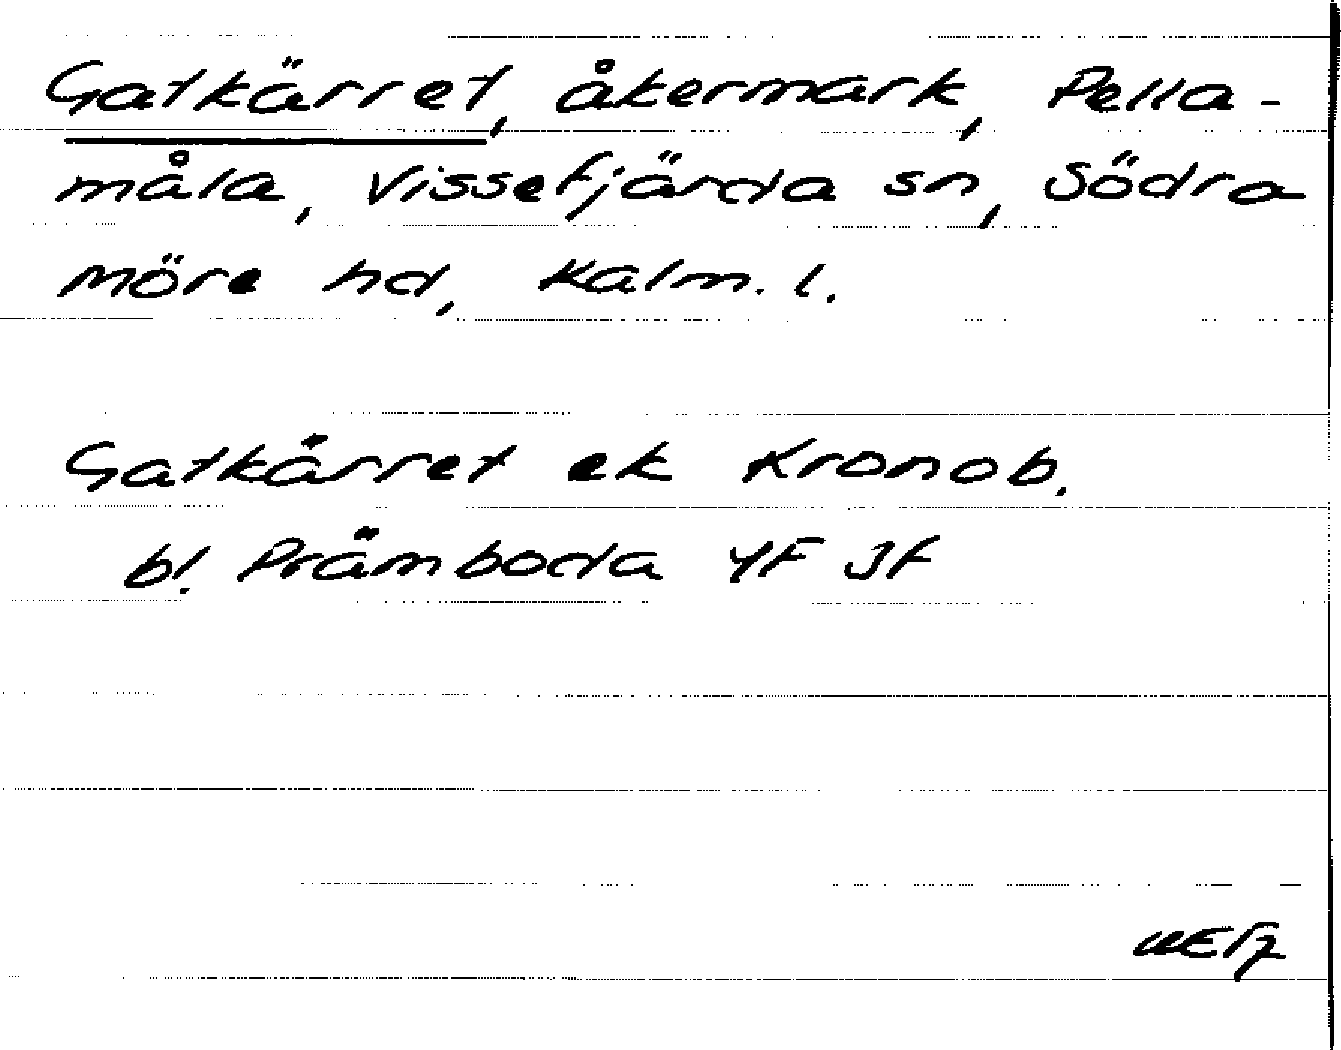 Gatkärret, åkermark, Pella-
måla, Vissefjärda sn, Södra
Möre hd, Kalm. l.
Gatkärret ek Kronob.
bl. Prämboda 4F JF